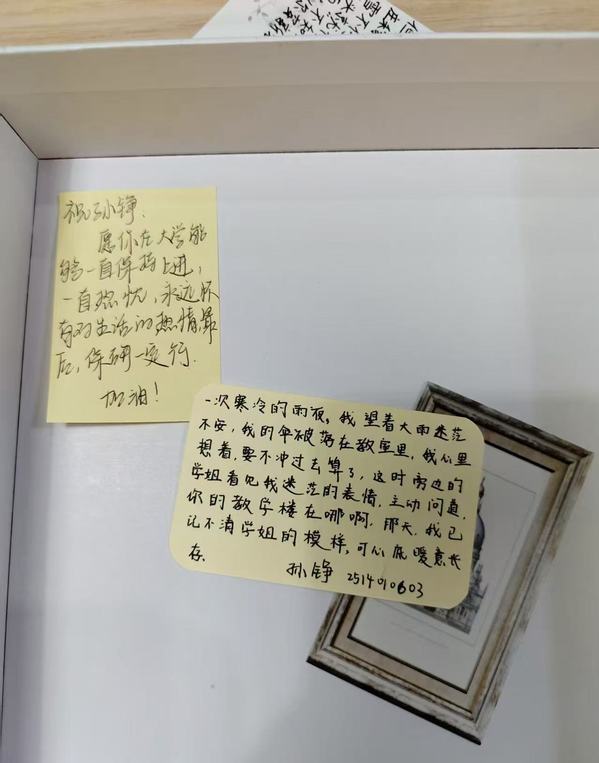 祝孙铮.
愿你在大学能
够一直保持上进,
一直热忱,永远怀
有对生活的热情,最
后,保研一定行.
加油!
一次寒冷的雨夜,我望着大雨迷茫
不安,我的伞被落在教室里,我心里
想着,要不冲过去算了,这时旁边的
学姐看见我迷茫的表情,主动问道,
你的教学楼在哪啊,那天,我已
记不清学姐的模样,可心底暖意长
存.
孙铮 2514010603